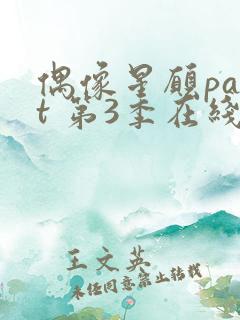 偶像星愿pa
t 第3季在线
王文英
未经同意禁止转载